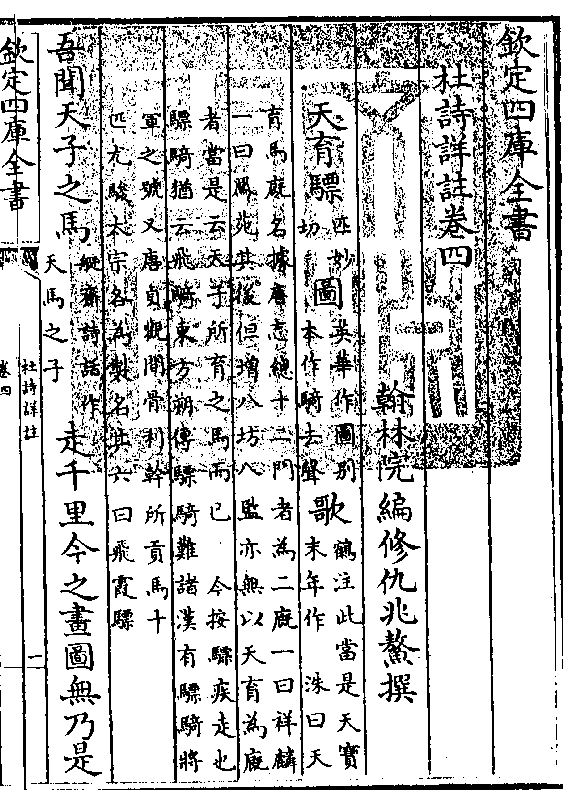 欽定四庫全書
杜詩詳註卷四
翰林院編修仇兆鰲撰
天育驃匹妙切圖英華作圖別本作騎去聲歌鶴注此當是天寶末年作 洙曰天
育馬廐名據唐志總十二門者為二廐一曰祥麟
一曰鳳苑其後但增八坊八監亦無以天育為廐
者當是云天子所育之馬而已 今按驃疾走也
驃騎猶云飛騎東方朔傳驃騎難諸漢有驃騎將
軍之號又唐貞觀間骨利幹所貢馬十
匹尤駿太宗各為製名其六曰飛霞驃
吾聞天子之馬艇齋詩話作天馬之子走千里今之畫圖無乃是
欽定四庫全書
杜詩詳註
卷四
一